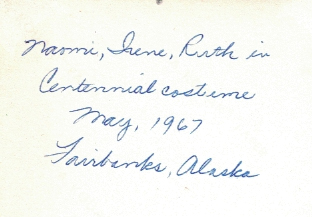 Naomi, Irene, Ruth in
Centennial costume
May, 1967
Fairbanks, Alaska